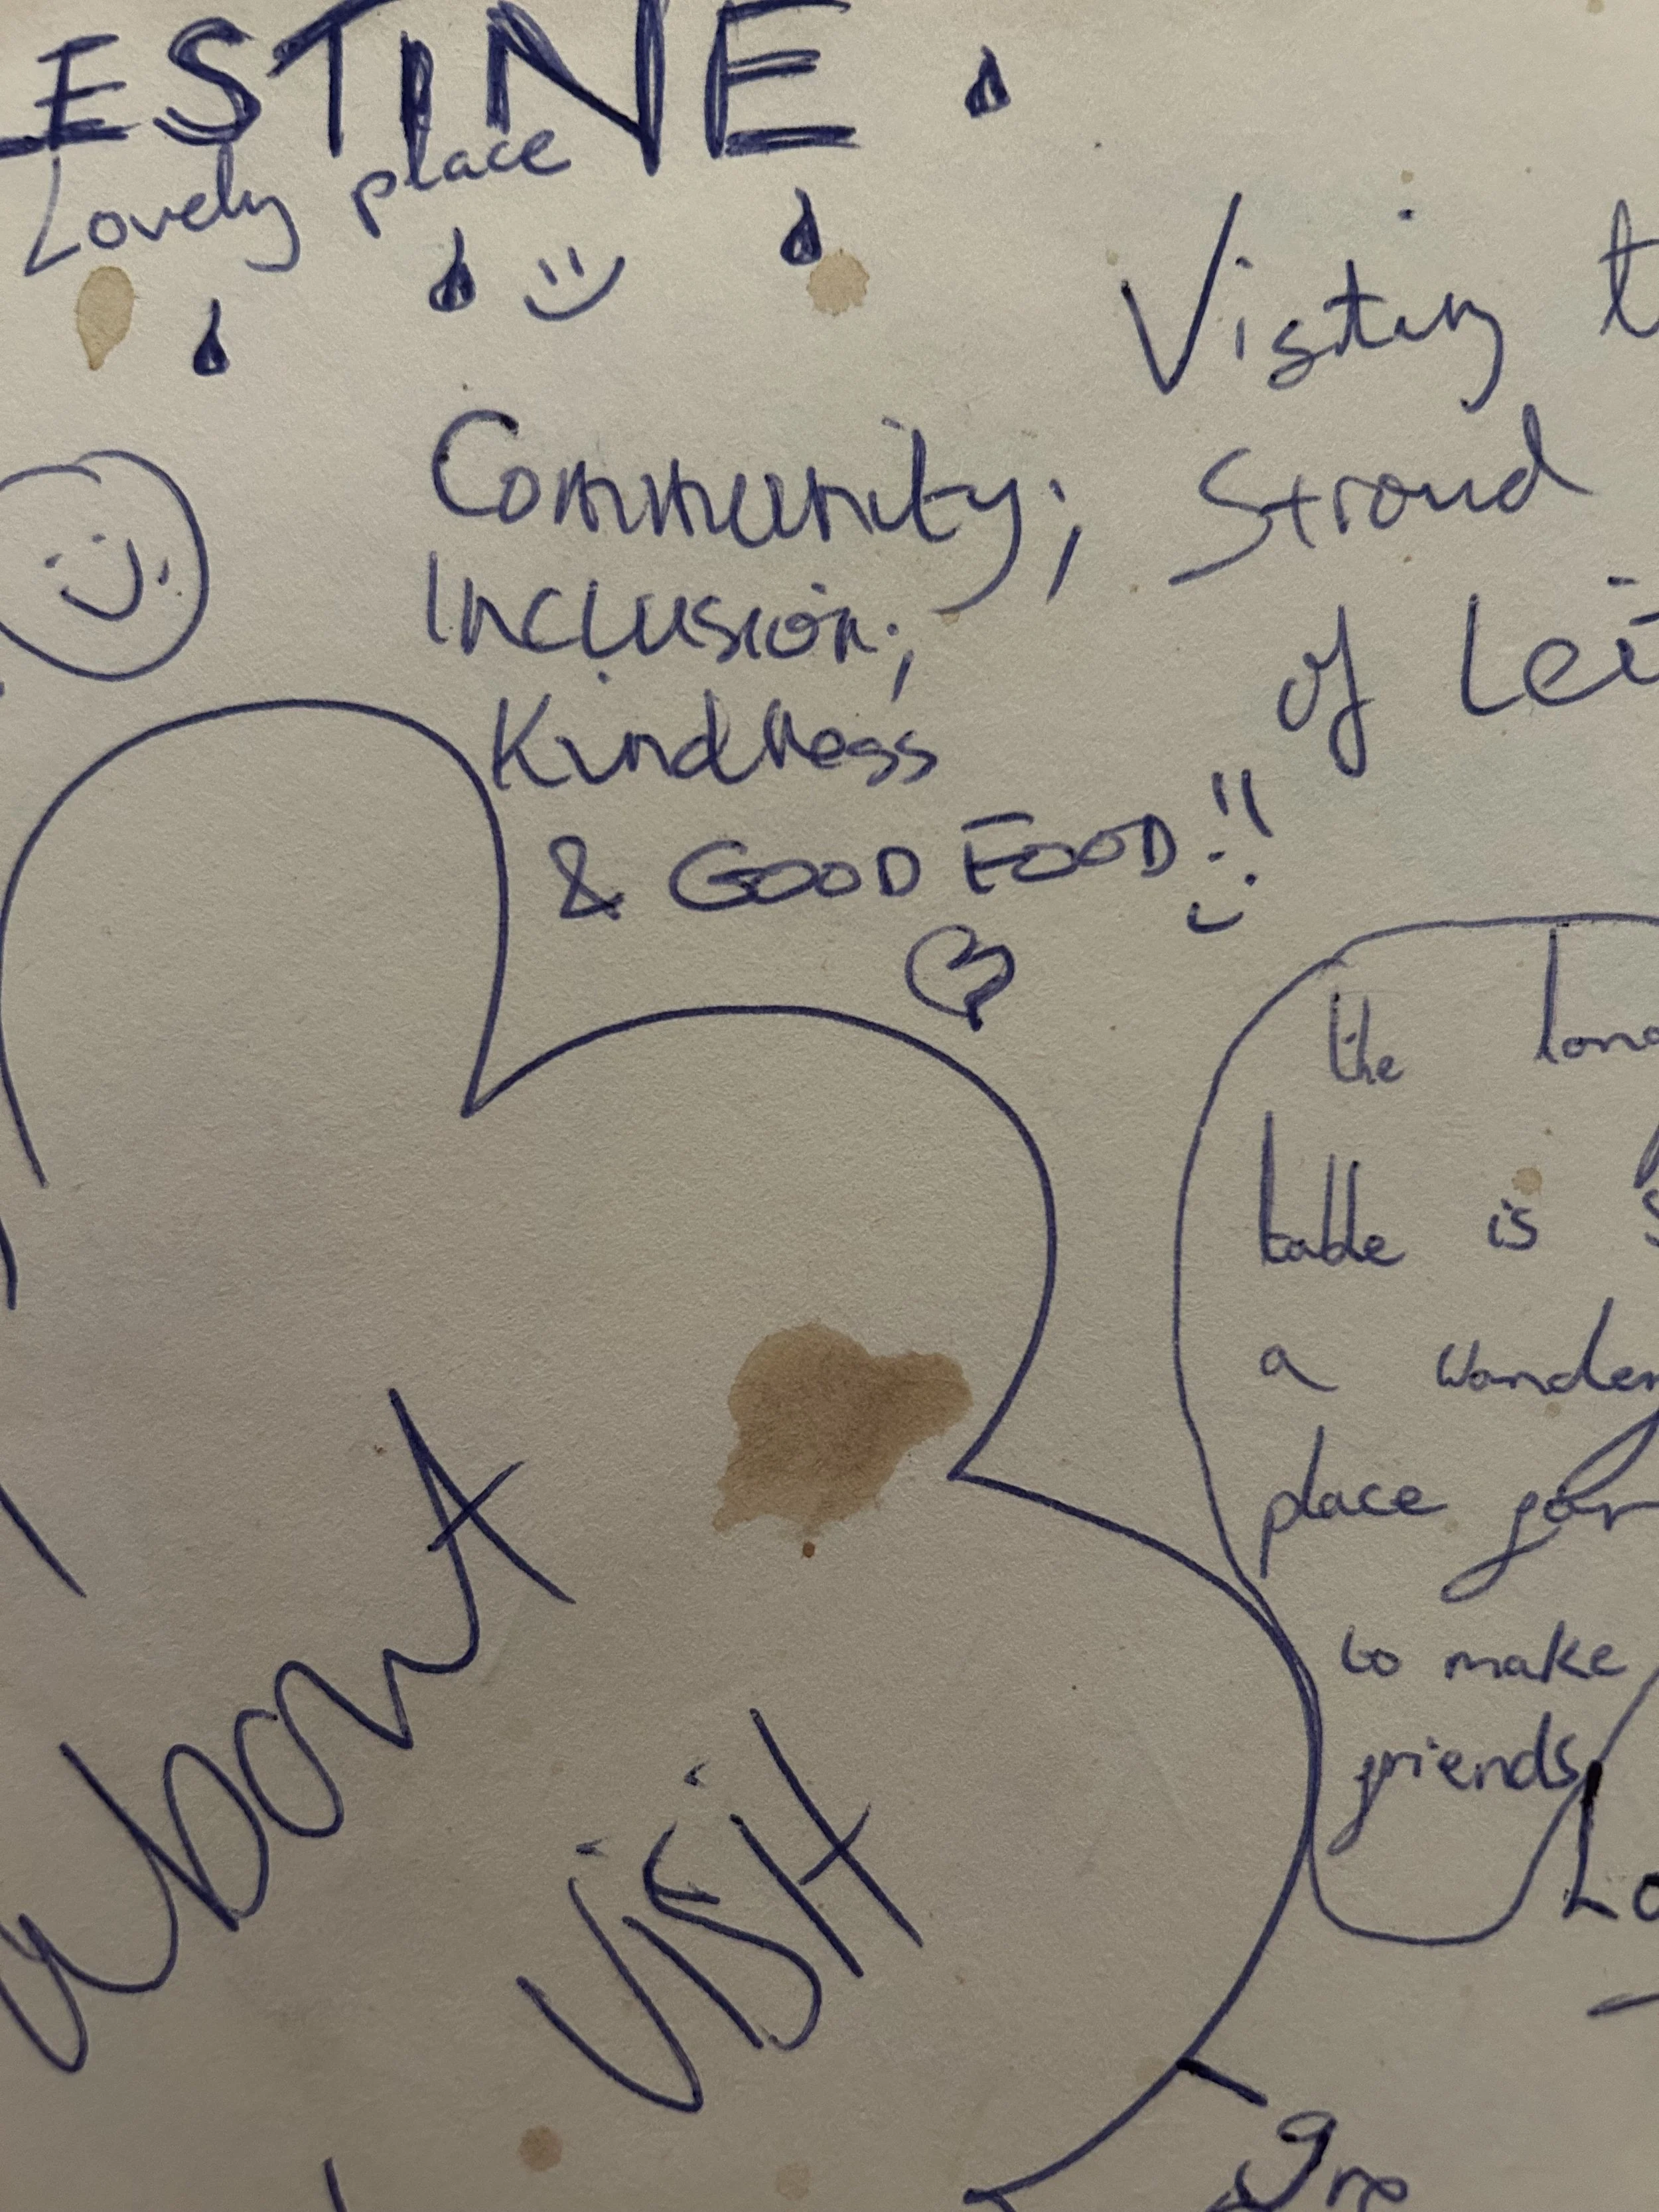 ESTINE
Lovely place
Visiting t
Community; Stroud
Inclusion;
of Lei
Kindness
& GOOD FOOD!!
the long
table is s
a wonder
place for
to make
friends
about
Lo